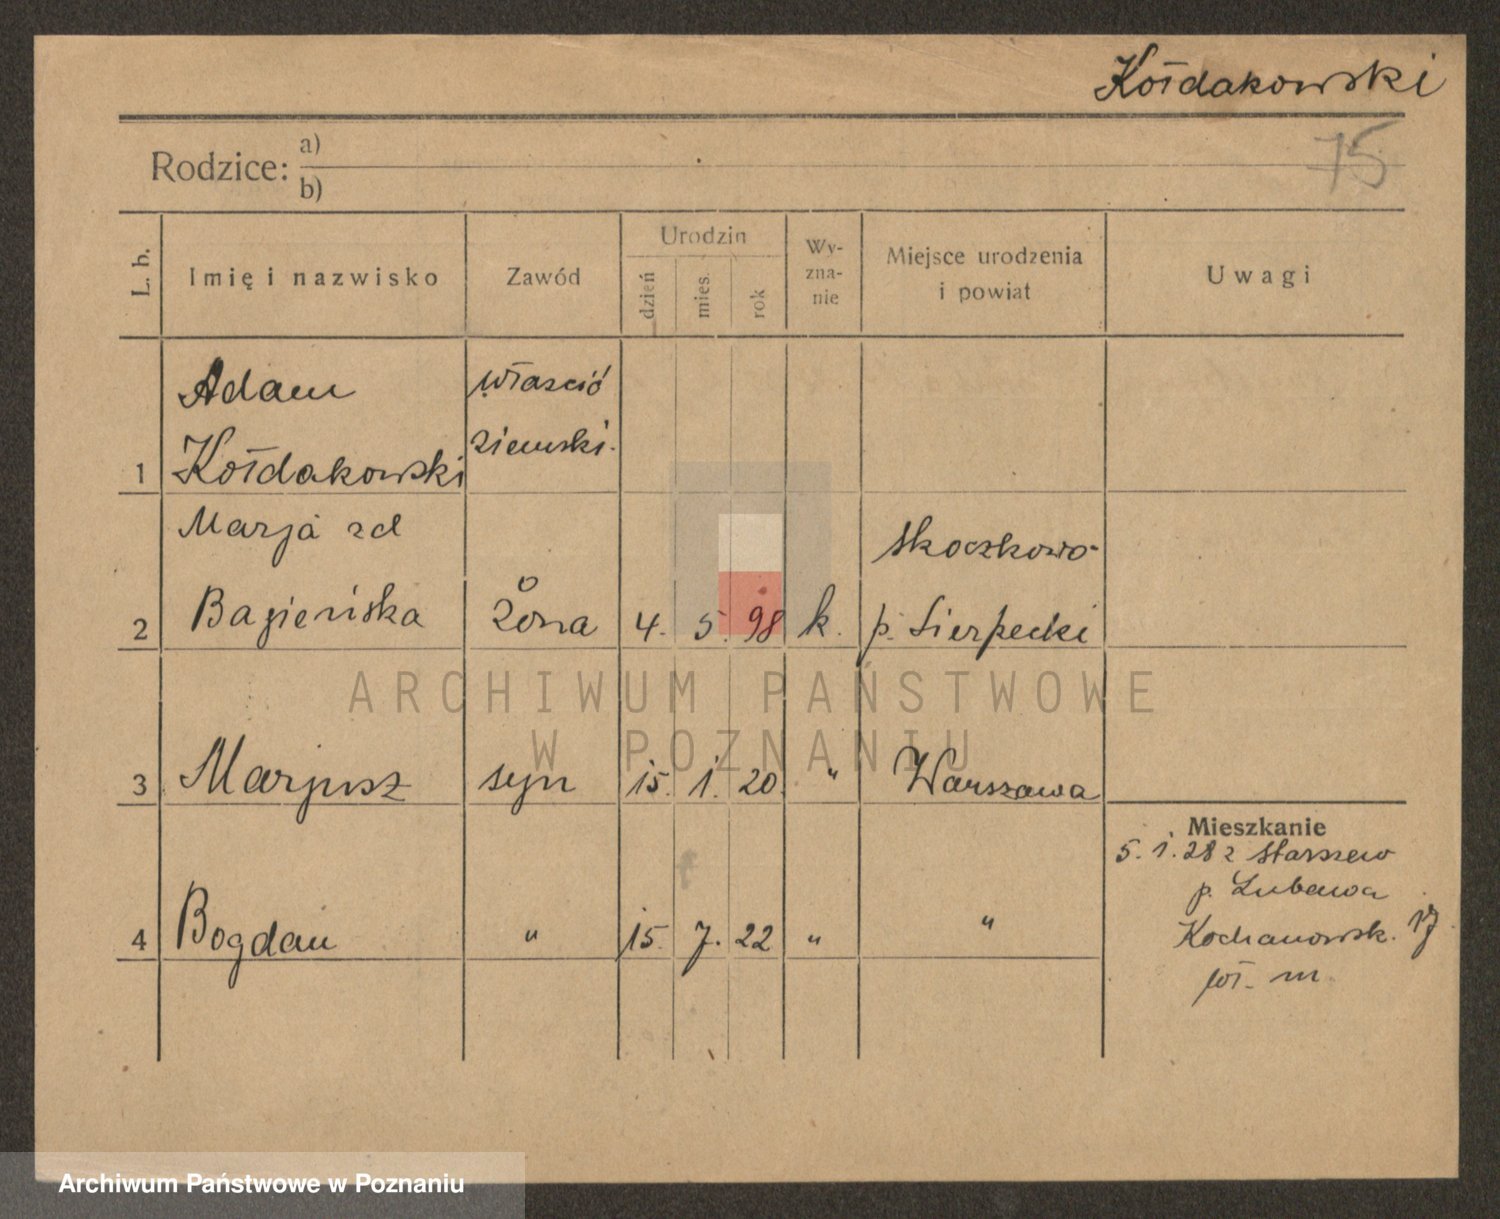 Kołdakowski
75
Rodzice: a)
b)
L. b.
Imię i nazwisko
Zawód
Urodzin
dzień
mies.
rok
Wy-
zna-
nie
Miejsce urodzenia
i powiat
Uwagi
Adam
Kołdakowski
właścic
ziemski.
1
Marja zd
Bazieńska
2
żona
4. 5. 98
k.
Skoczkowo
p. Sierpecki
3
Marjusz
syn
15. 1. 20.
"
Warszawa
4
Bogdan
"
15. 7. 22
"
"
Mieszkanie
5. 1. 28 z Starszew
p. Lubawa
Kochanowsk. 17
wł. m
ARCHIWUM PAŃSTWOWE
W POZNANIU
Archiwum Państwowe w Poznaniu